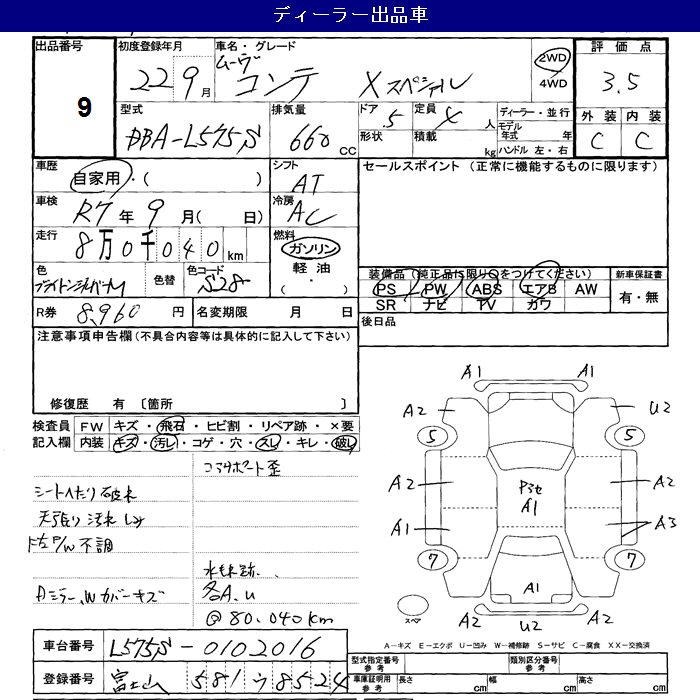 ディーラー出品車
出品番号 初度登録年月 車名・グレード 評価点
9 22 9月 ムーヴ コンテ Xスペシャル 2WD 4WD 3.5
型式 排気量 ドア 定員 ディーラー・並行 外装 内装
DBA-L575S 660 CC 5 4人 モデル年式 年 C C
形状 積載 kg ハンドル 左・右
車歴 自家用・( ) シフト AT セールスポイント (正常に機能するものに限ります)
車検 R7年 9月( 日) 冷房 AC
走行 8万0千040km 燃料 ガソリン
軽油
( ・ )
色 色替 色コード S28
装備品(純正品に限り○をつけてください) 新車保証書
PS PW ABS エアB AW 有・無
SR ナビ TV カワ
R券 8,960円 名変期限 月 日 後日品
注意事項申告欄(不具合内容等は具体的に記入して下さい)
修復歴 有 〔箇所 〕
検査員 FW キズ・飛石・ヒビ割・リペア跡・×要
記入欄 内装 キズ・汚レ・コゲ・穴・スレ・キレ・破レ
コアサポート歪
シートヘたり 破れ
天張り 汚れ しみ
P/W不調
水もれ跡.
Dミラー、Wカバーキズ
各A.U
@80.040km
A1 A1
A2 U2
5 5
A2 A2
Pヨセ
A1
A1 A3
7 7
A1
スペア A2 U2 A2
A-キズ E-エクボ U-凹み W-補修跡 S-サビ C-腐食 XX-交換済
車台番号 L575S-0102016
型式指定番号 参考 類別区分番号 参考
登録番号 富士山 581 う 8524
車庫証明用 参考 長さ cm 幅 cm 高さ cm